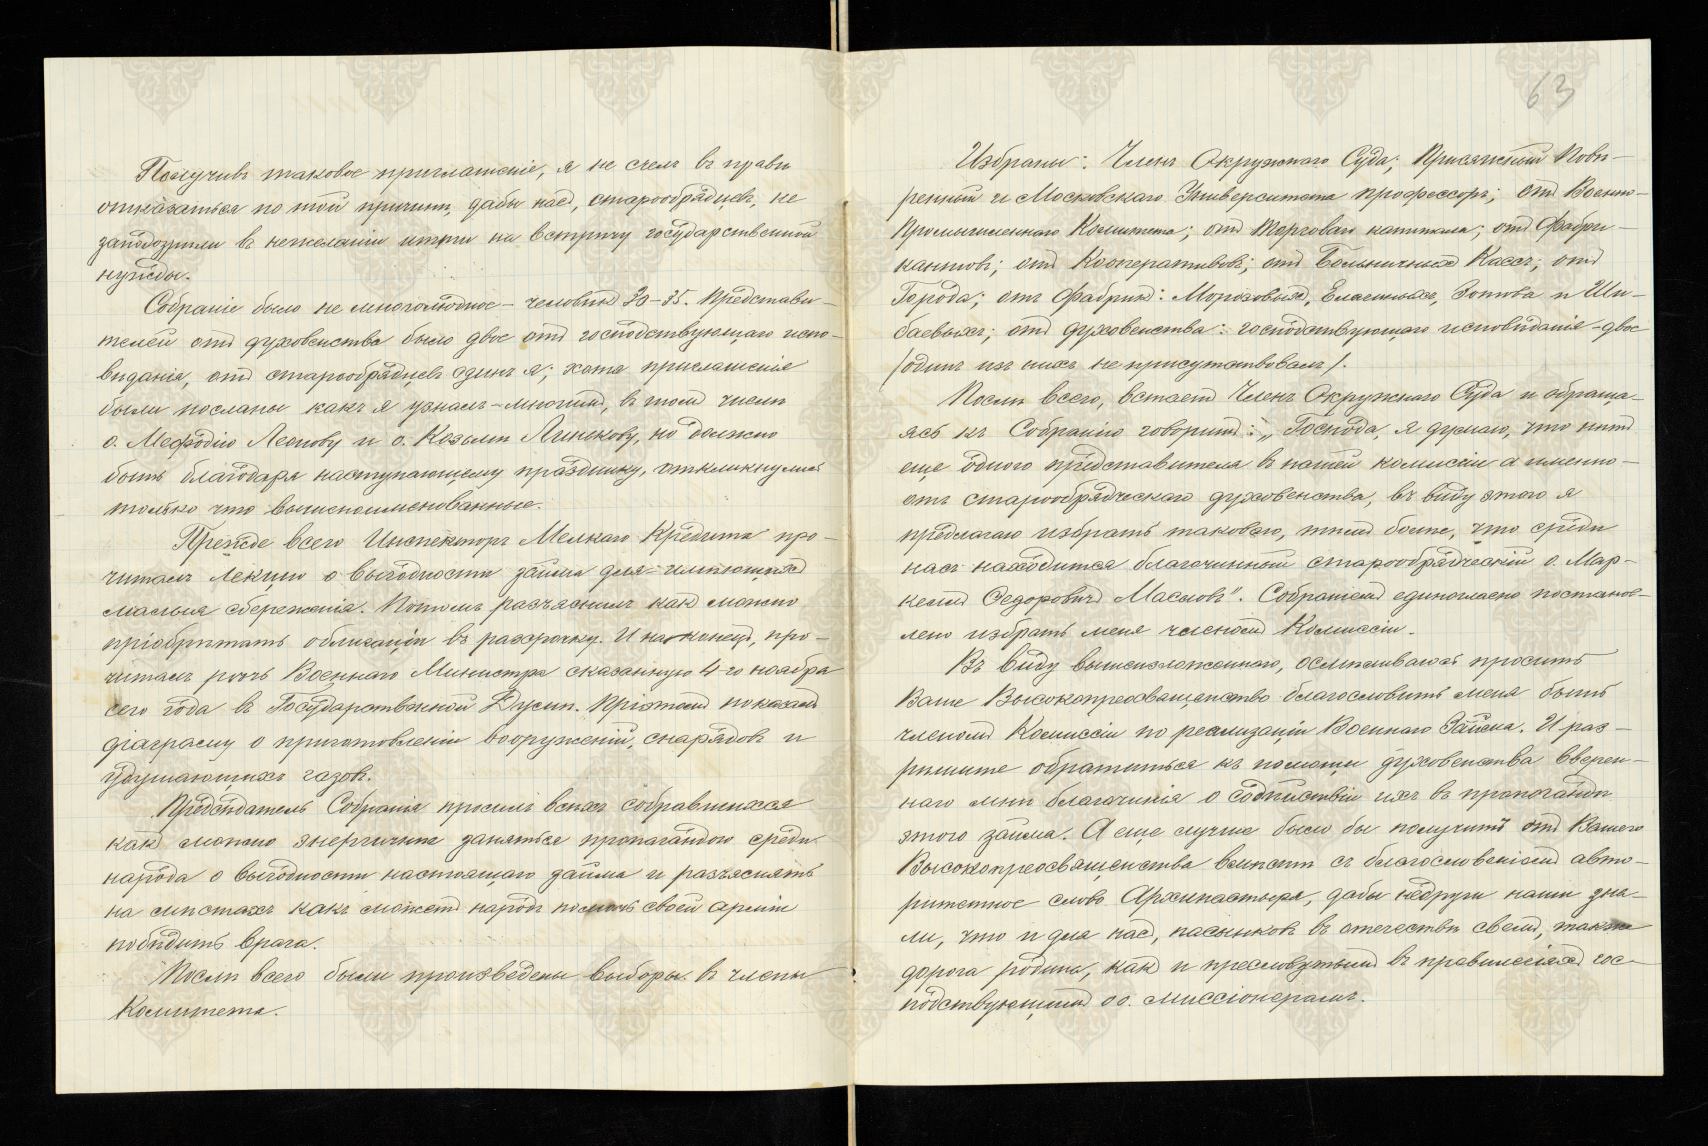 Получивъ таковое приглашеніе, я не счелъ въ правѣ
отказаться по той причинѣ, дабы насъ, старообрядцевъ, не
заподозрили въ нежеланіи итти на встрѣчу государственной
нужды.
Собраніе было не многолюдное – человѣкъ 30–35. Представи–
телей отъ духовенства было двое отъ господствующаго испо–
вѣданія, отъ старообрядцевъ одинъ я; хотя приглашенія
были посланы какъ я узналъ – многимъ, въ томъ числѣ
о. Мефодію Леонову и о. Козьмѣ, но должно
быть благодаря наступающему празднику, откликнулись
только что вышепоименованные.
Прежде всего Инспекторъ Мелкаго Кредита про–
читалъ лекцію о выгодности займа для имѣющихъ
малыя сбереженія. Потомъ разъяснилъ какъ можно
пріобрѣтать облигаціи въ разсрочку. И наконецъ, про–
читалъ рѣчь Военнаго Министра сказанную 4-го ноября
сего года въ Государственной Думѣ. При этомъ показалъ
діаграму о приготовленіи вооруженій, снарядовъ и
удушающихъ газовъ.
Предсѣдатель Собранія просилъ всѣхъ собравшихся
какъ можно энергичнѣе заняться пропагандою среди
народа о выгодности настоящаго займа и разъяснять
на мѣстахъ какъ можетъ народъ помочь своей арміи
побѣдить врага.
Послѣ всего были произведены выборы въ члены
Комитета.
63
Избраны: Членъ Окружнаго Суда; Присяжный Повѣ–
ренный и Московскаго Университета профессоръ; отъ Военно–
Промышленнаго Комитета; отъ Торговаго капитала; отъ Фабри–
кантовъ; отъ Кооперативовъ; отъ Больничныхъ Кассъ; отъ
Города; отъ фабрикъ: Морозовыхъ, Елагиныхъ, Зотова и Ши–
баевыхъ; отъ духовенства: господствующаго исповѣданія – двое
/одинъ изъ нихъ не присутствовалъ/.
Послѣ всего, встаетъ Членъ Окружнаго Суда и обраща–
ясь къ Собранію говоритъ: „Господа, я думаю, что нѣтъ
еще одного представителя въ нашей комиссіи а именно –
отъ старообрядческаго духовенства, въ виду этого я
предлагаю избрать таковаго, тѣмъ болѣе, что среди
насъ находится благочинный старообрядческій о. Мар–
келлъ Ѳедоровичъ Масловъ". Собраніемъ единогласно постанов–
лено избрать меня членомъ Комиссіи.
Въ виду вышеизложеннаго, осмѣливаюсь просить
Ваше Высокопреосвященство благословить меня быть
членомъ Комиссіи по реализаціи Военнаго Займа. И раз–
рѣшите обратиться къ помощи духовенства ввѣрен–
наго мнѣ благочинія о содѣйствіи ихъ въ пропогандѣ
этого займа. А еще лучше было бы получить отъ Вашего
Высокопреосвященства вмѣстѣ съ благословеніемъ авто–
ритетное слово Архипастыря, дабы недруги наши зна–
ли, что и для насъ, пасынковъ въ отечествѣ своемъ, также
дорога родина, какъ и пресловутымъ въ привилегіяхъ гос–
подствующимъ оо. миссіонерамъ.